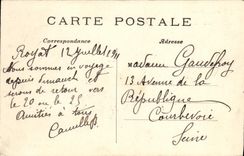 CARTE POSTALE
Correspondance
Adresse
Royat 12 Juillet 1911
Nous sommes en voyage
depuis Dimanche et
serons de retour vers
le 20 ou le 25
Amitiés à tous
Camille
Madame Gaudefroy
13 Avenue de la
République
Courbevoie
Seine